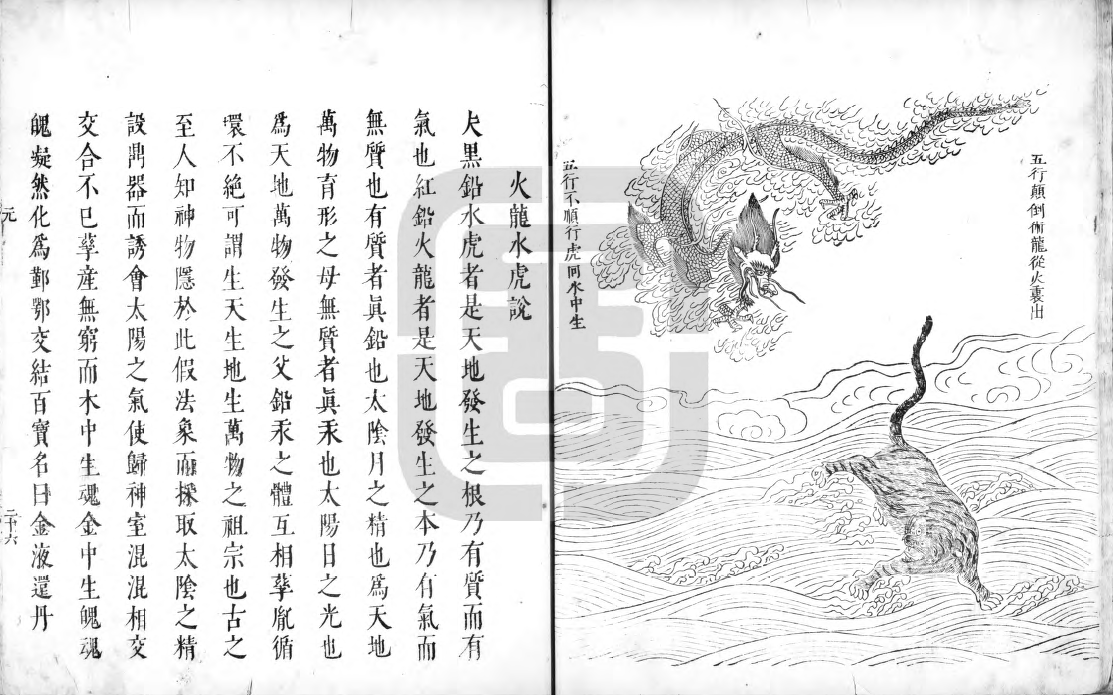 五行顛倒術龍從火裏出
五行不順行虎向水中生
火龍水虎說
夫黑鉛水虎者是天地發生之根乃有質而有
氣也紅鉛火龍者是天地發生之本乃有氣而
無質也有質者眞鉛也太陰月之精也爲天地
萬物育形之母無質者眞汞也太陽日之光也
爲天地萬物發生之父鉛汞之體互相孳胤循
環不絶可謂生天生地生萬物之祖宗也古之
至人知神物隱於此假法象而採取太陰之精
設鼎器而誘會太陽之氣使歸神室混混相交
交合不已孳産無窮而木中生魂金中生魄魂
魄凝然化爲鄞鄂交結百寳名曰金液還丹
元
二十六